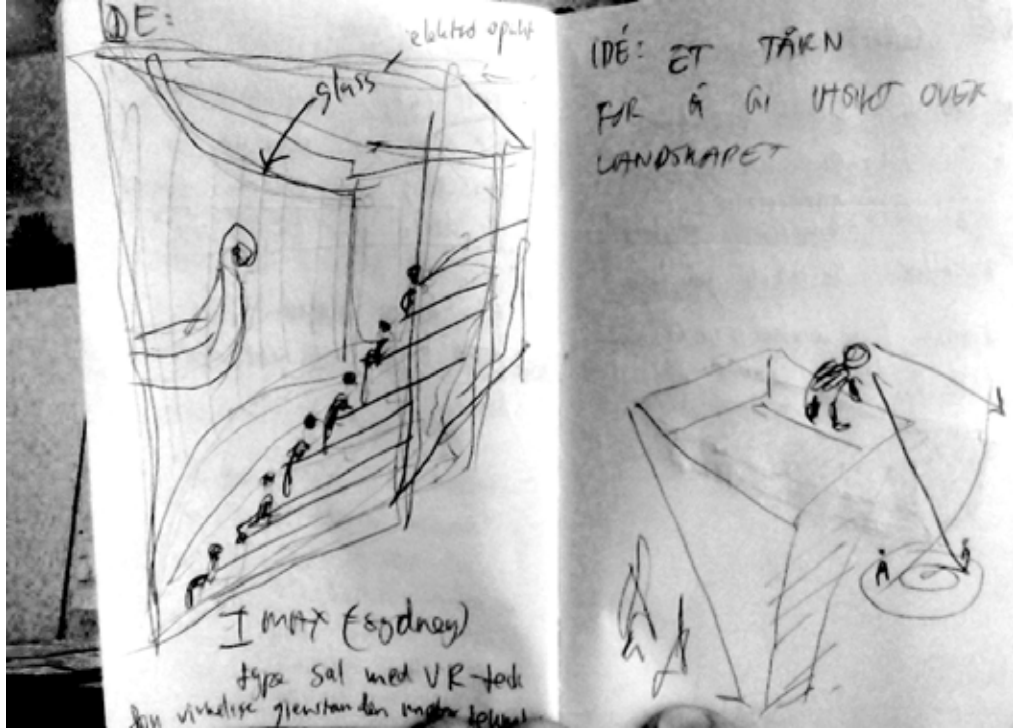 IDE:
elektro opakt
glass
IMAX (sydney)
type sal med VR-teck
den virkelige gjenstanden møter
IDÉ: ET TÅRN
FOR Å GI UTSIKT OVER
LANDSKAPET